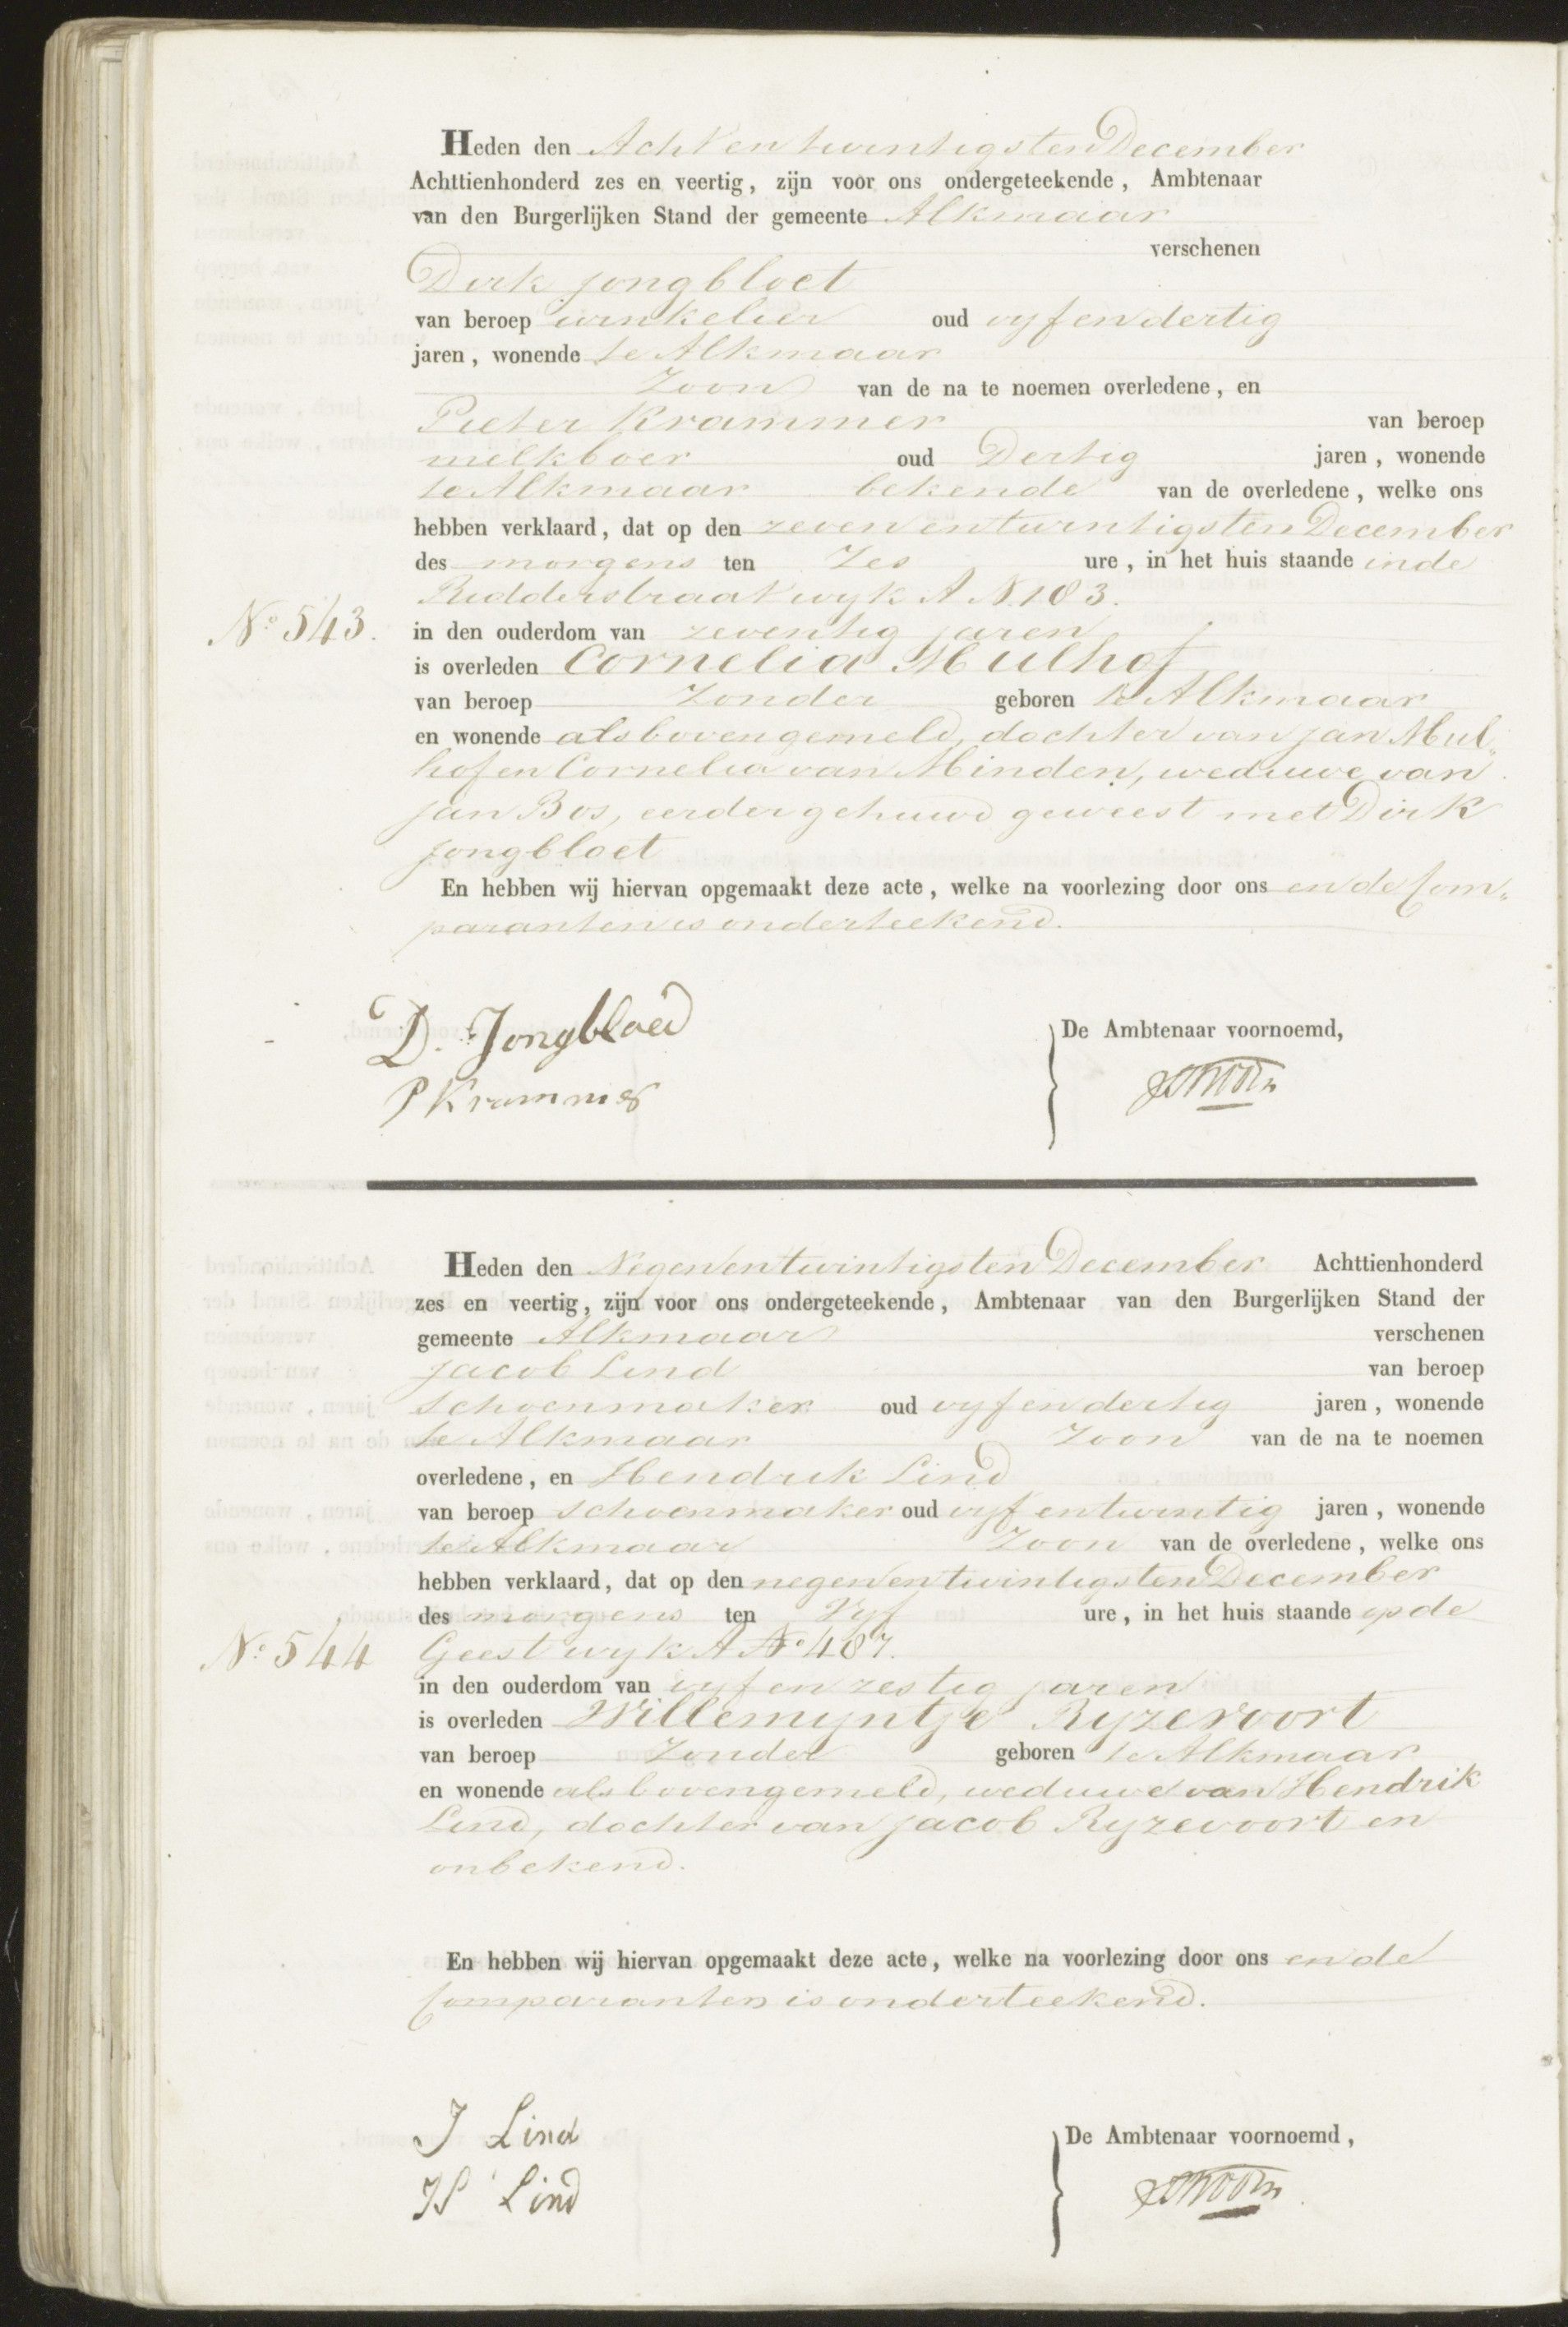 Heden den Acht en twintigsten December
Achttienhonderd zes en veertig, zijn voor ons ondergeteekende, Ambtenaar
van den Burgerlijken Stand der gemeente Alkmaar
verschenen
Dirk Jongbloet
van beroep winkelier oud vyf en dertig
jaren, wonende te Alkmaar
Zoon van de na te noemen overledene, en
Pieter Krammer van beroep
melkboer oud Dertig jaren, wonende
te Alkmaar bekende van de overledene, welke ons
hebben verklaard, dat op den zeven en twintigsten December
des morgens ten Zes ure, in het huis staande in de
Ridderstraat wyk A N. 183.
No 543. in den ouderdom van zeventig jaren
is overleden Cornelia Mulhof
van beroep Zonder geboren te Alkmaar
en wonende als bovengemeld, dochter van Jan Mul„
hof en Cornelia van Minden, weduwe van
Jan Bos, eerder gehuwd geweest met Dirk
Jongbloet
En hebben wij hiervan opgemaakt deze acte, welke na voorlezing door ons en de Com„
paranten is onderteekend.
D. Jongbloed
De Ambtenaar voornoemd,
P Krammer
Heden den Negen en twintigsten December Achttienhonderd
zes en veertig, zijn voor ons ondergeteekende, Ambtenaar van den Burgerlijken Stand der
gemeente Alkmaar verschenen
Jacob Lind van beroep
Schoenmaker oud vyf en dertig jaren, wonende
te Alkmaar Zoon van de na te noemen
overledene, en Hendrik Lind
van beroep Schoenmaker oud vyf en twintig jaren, wonende
te Alkmaar Zoon van de overledene, welke ons
hebben verklaard, dat op den negen en twintigsten December
des morgens ten Vyf ure, in het huis staande op de
No 544 Geest wyk A No 487.
in den ouderdom van vyf en zestig jaren
is overleden Willemyntje Ryzevoort
van beroep Zonder geboren te Alkmaar
en wonende als bovengemeld, weduwe van Hendrik
Lind, dochter van Jacob Ryzevoort en
onbekend.
En hebben wij hiervan opgemaakt deze acte, welke na voorlezing door ons en de
Comparanten is onderteekend.
J Lind
De Ambtenaar voornoemd,
H Lind